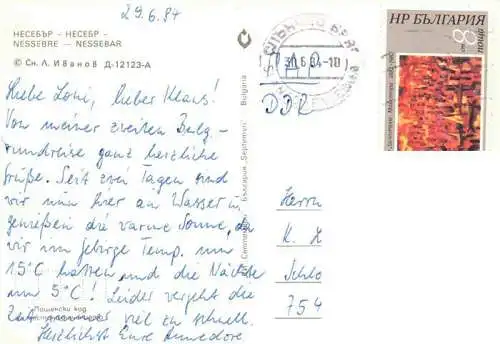 29.6.84
НЕСЕБЪР — НЕСЕБР —
NESSEBRE — NESSEBAR
© Сн. Л. Иванов Д-12123-А
Liebe Loni, lieber Klaus!
Von meiner zweiten Bulg.-
rundreise ganz herzliche
Grüße. Seit zwei Tagen sind
wir nun hier am Wasser u.
genießen die warme Sonne, da
wir im Gebirge Temp. um
15°C hatten und die Nächte
um 5°C! Leider vergeht die
Zeit immer viel zu schnell.
Herzlichst Eure Annedore
Пощенски код
България „Septemvri" Bulgaria
СЛЪНЧЕВ БРЯГ
30.6.84-10
PAR
DDR
НР БЪЛГАРИЯ
поща
8
ст.
Herrn
K. H
Schlo
754